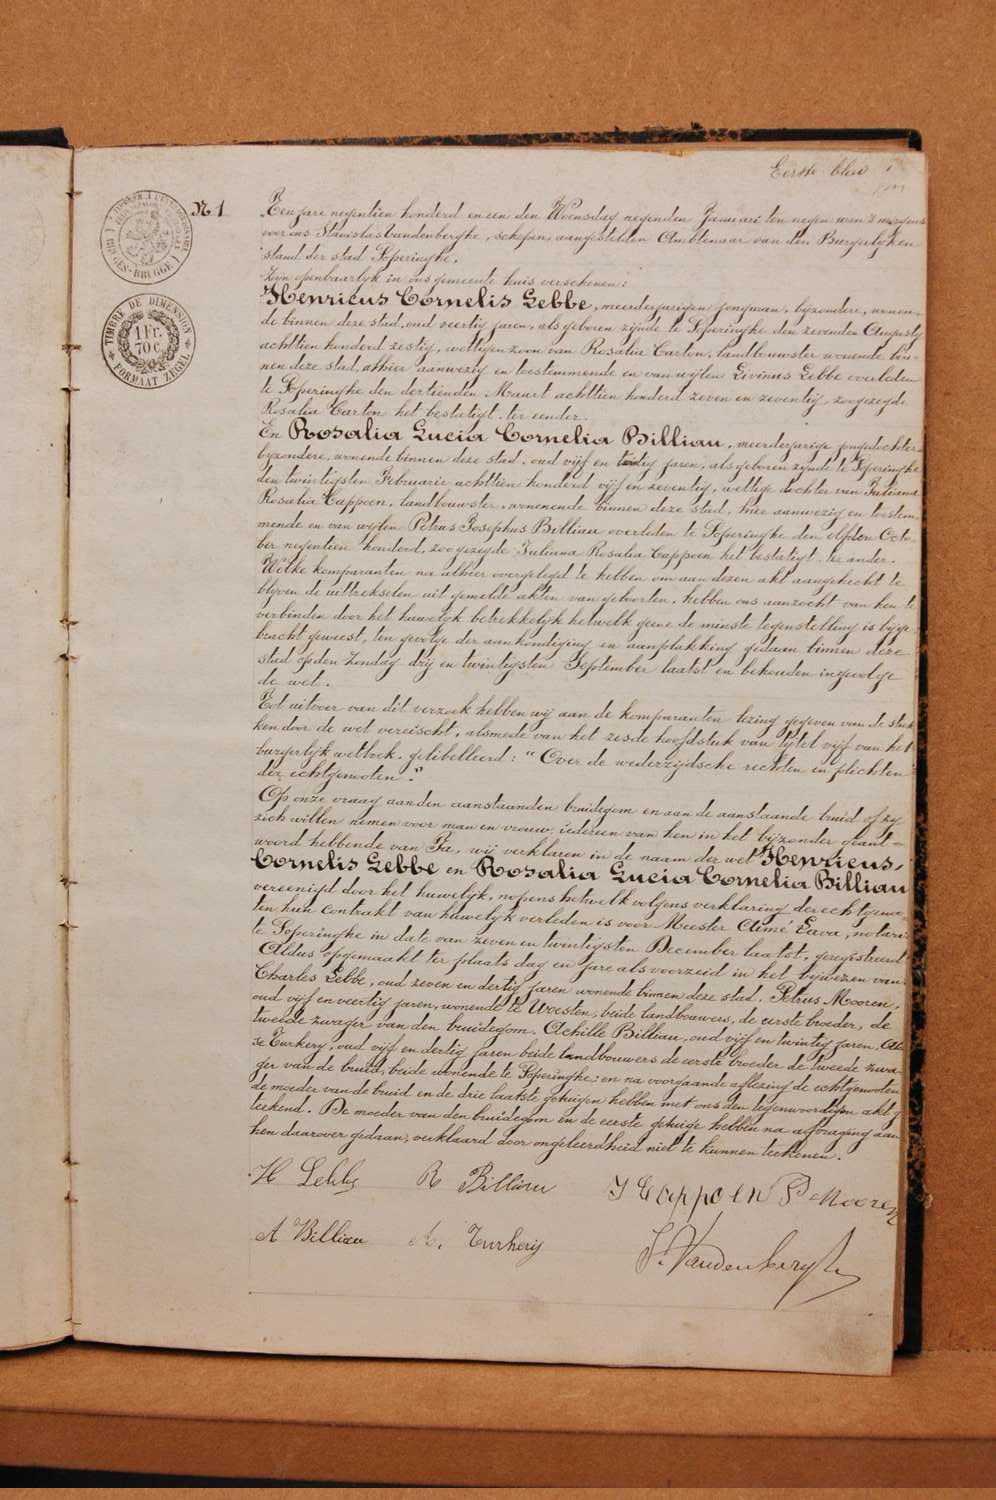 Eerste blad
TIMBRE DE DIMENSION
1 Fr. 70 c.
FORMAAT ZEGEL
BRUGES-BRUGGE
N 1
Ten jare negentien honderd en een den Woensdag negenden Januari ten negen uren 's morgens
voor ons Stanislas Vandenberghe, schepen, aangestelden Ambtenaar van den Burgerlyken
stand der stad Poperinghe.
Zyn openbaarlyk in ons gemeente huis verschenen:
Henricus Cornelis Lebbe, meerderjarigen jongman, byzondere, wonen-
de binnen deze stad, oud veertig jaren, als geboren zynde te Poperinghe den zevenden Augusty
achttien honderd zestig, wettigen zoon van Rosalia Carton, landbouwster wonende bin-
nen deze stad, alhier aanwezig en toestemmende en van wylen Livinus Lebbe overleden
te Poperinghe den dertienden Maart achttien honderd zeven en zeventig, zoo gezegde
Rosalia Carton het bestatigt. ter eender.
En Rosalia Lucia Cornelia Billiau, meerderjarige jongedochter
byzondere, wonende binnen deze stad, oud vyf en twintig jaren, als geboren zynde te Poperinghe
den twintigsten Februarie achttien honderd vyf en zeventig, wettige dochter van Juliana
Rosalia Cappoen, landbouwster, wonenende binnen deze stad, hier aanwezig en toestem-
mende en van wylen Petrus Josephus Billiau overleden te Poperinghe den elfden Octo-
ber negentien honderd, zoo gezegde Juliana Rosalia Cappoen het bestatigt. ter ander.
Welke komparanten na alhier overgelegd te hebben om aan dezen akt aangehecht te
blyven de uittrekselen uit gemelde akten van geboorten, hebben ons aanzocht van hen te
verbinden door het huwelyk betrekkelyk hetwelk geene de minste tegenstelling is byge-
bracht geweest, ten gevolge der aankondiging en aanplakking gedaan binnen deze
stad op den Zondag dry en twintigsten September laatst en behouden ingevolge
de wet.
Tot uitvoer van dit verzoek hebben wy aan de komparanten lezing gegeven van de stuk
ken door de wet vereischt, alsmede van het zesde hoofdstuk van tytel vyf van het
burgerlyk wetboek, getibelleerd: "Over de wederzydsche rechten en plichten
der echtgenooten."
Op onze vraag aan den aanstaanden bruidegom en aan de aanstaande bruid of zy
zich willen nemen voor man en vrouw, iedereen van hen in het byzonder geant-
woord hebbende van Ja, wy verklaren in de naam der wet Henricus,
Cornelis Lebbe en Rosalia Lucia Cornelia Billiau
vereenigd door het huwelyk, nopens hetwelk volgens verklaring der echtgenoo-
ten hun contrakt van huwelyk verleden is voor Meester Aimé Lava, notaris
te Poperinghe in date van zeven en twintigsten December laatst, geregistreerd
Aldus opgemaakt ter plaats dag en jare als voorzeid in het bywezen van
Charles Lebbe, oud zeven en dertig jaren wonende binnen deze stad. Petrus Mooren,
oud vyf en veertig jaren, wonende te Woesten, beide landbouwers, de eerste broeder, de
tweede zwager van den bruidegom. Achille Billiau, oud vyf en twintig jaren.
Turkery, oud vyf en dertig jaren beide landbouwers de eerste broeder de tweede zwa-
ger van de bruid, beide wonende te Poperinghe; en na voorgaande aflezing de echtgenooten
de moeder van de bruid en de drie laatste getuigen hebben met ons den tegenwoordigen akt ge
teekend. De moeder van den bruidegom en de eerste getuige hebben na afvraging aan
hen daarover gedaan, verklaard door ongeleerdheid niet te kunnen teekenen.
H Lebbe R Billiau J Cappoen P Mooren
A Billiau A. Turkery S. Vandenberghe